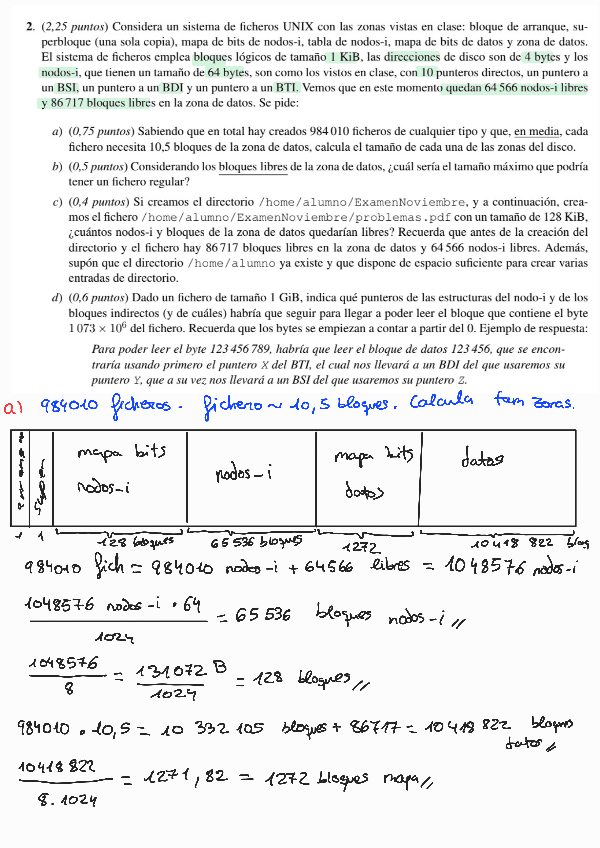 2. (2,25 puntos) Considera un sistema de ficheros UNIX con las zonas vistas en clase: bloque de arranque, su-
perbloque (una sola copia), mapa de bits de nodos-i, tabla de nodos-i, mapa de bits de datos y zona de datos.
El sistema de ficheros emplea bloques lógicos de tamaño 1 KiB, las direcciones de disco son de 4 bytes y los
nodos-i, que tienen un tamaño de 64 bytes, son como los vistos en clase, con 10 punteros directos, un puntero a
un BSI, un puntero a un BDI y un puntero a un BTI. Vemos que en este momento quedan 64 566 nodos-i libres
y 86 717 bloques libres en la zona de datos. Se pide:
a) (0,75 puntos) Sabiendo que en total hay creados 984 010 ficheros de cualquier tipo y que, en media, cada
fichero necesita 10,5 bloques de la zona de datos, calcula el tamaño de cada una de las zonas del disco.
b) (0,5 puntos) Considerando los bloques libres de la zona de datos, ¿cuál sería el tamaño máximo que podría
tener un fichero regular?
c) (0,4 puntos) Si creamos el directorio /home/alumno/ExamenNoviembre, y a continuación, crea-
mos el fichero /home/alumno/ExamenNoviembre/problemas.pdf con un tamaño de 128 KiB,
¿cuántos nodos-i y bloques de la zona de datos quedarían libres? Recuerda que antes de la creación del
directorio y el fichero hay 86 717 bloques libres en la zona de datos y 64 566 nodos-i libres. Además,
supón que el directorio /home/alumno ya existe y que dispone de espacio suficiente para crear varias
entradas de directorio.
d) (0,6 puntos) Dado un fichero de tamaño 1 GiB, indica qué punteros de las estructuras del nodo-i y de los
bloques indirectos (y de cuáles) habría que seguir para llegar a poder leer el bloque que contiene el byte
1 073 × 10⁶ del fichero. Recuerda que los bytes se empiezan a contar a partir del 0. Ejemplo de respuesta:
Para poder leer el byte 123 456 789, habría que leer el bloque de datos 123 456, que se encon-
traría usando primero el puntero X del BTI, el cual nos llevará a un BDI del que usaremos su
puntero Y, que a su vez nos llevará a un BSI del que usaremos su puntero Z.
a) 984010 ficheros. fichero ~ 10,5 bloques. Calcula tam zonas.
mapa bits nodos-i
nodos-i
mapa bits datos
datos
1 1 128 bloques 65 536 bloques 1272 10 418 822 bloq
984010 fich = 984010 nodos-i + 64566 libres = 1048576 nodos-i
1048576 nodos-i · 64 / 1024 = 65 536 bloques nodos-i //
1048576 / 8 = 131072 B / 1024 = 128 bloques //
984010 · 10,5 = 10 332 105 bloques + 86717 = 10 418 822 bloques datos //
10418822 / 8·1024 = 1271,82 = 1272 bloques mapa //